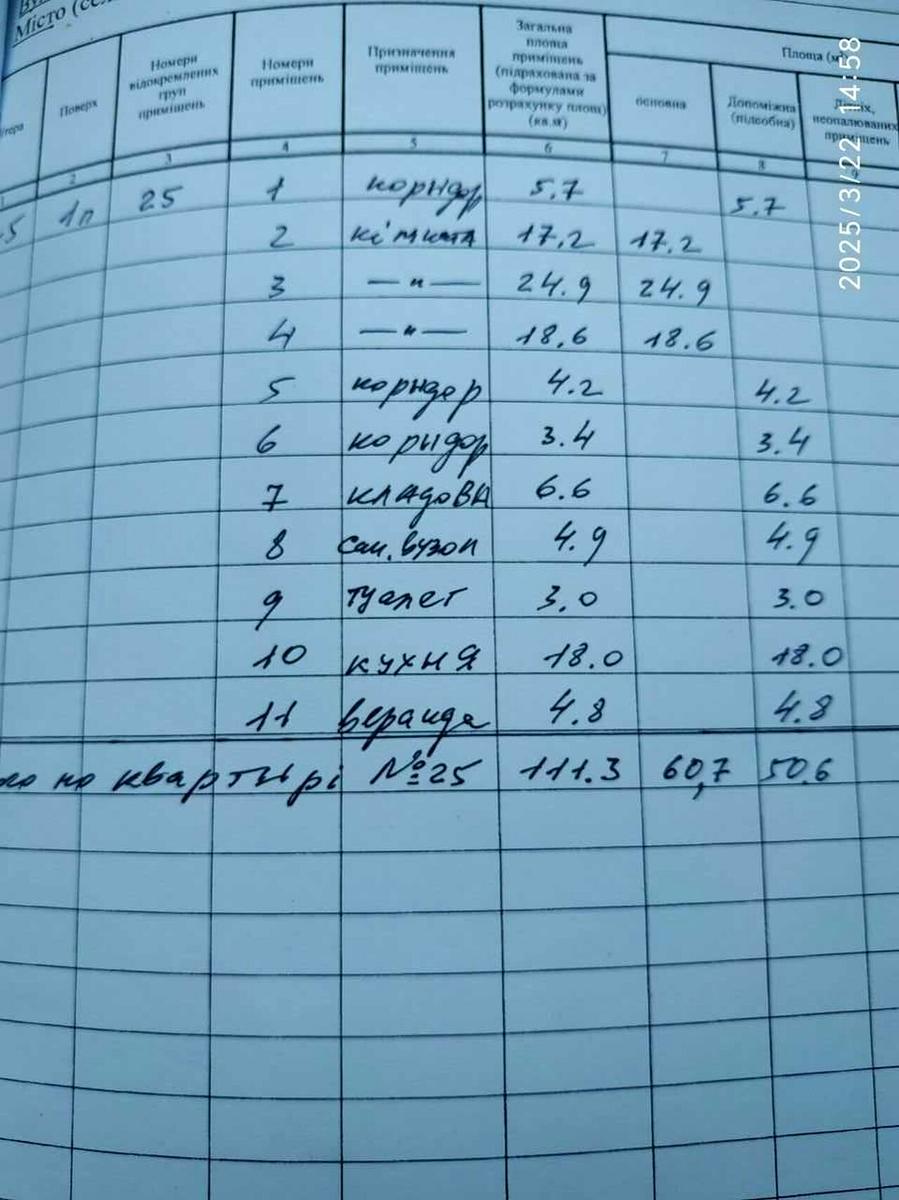 Місто (се
Поверх
Номери відокремлених груп приміщень
Номери приміщень
Призначення приміщень
Загальна площа приміщень (підрахована за формулами розрахунку площ) (кв.м)
Площа (м
основна
Допоміжна (підсобна)
неопалюваних приміщень
1 2 3 4 5 6 7 8 9
5 1п 25 1 коридор 5.7 5.7
2 кімната 17.2 17.2
3 —"— 24.9 24.9
4 —"— 18.6 18.6
5 коридор 4.2 4.2
6 корыдор 3.4 3.4
7 кладова 6.6 6.6
8 сан.вузол 4.9 4.9
9 туалет 3.0 3.0
10 кухня 18.0 18.0
11 веранда 4.8 4.8
по квартырі №25 111.3 60,7 50.6
2025/3/22 14:58